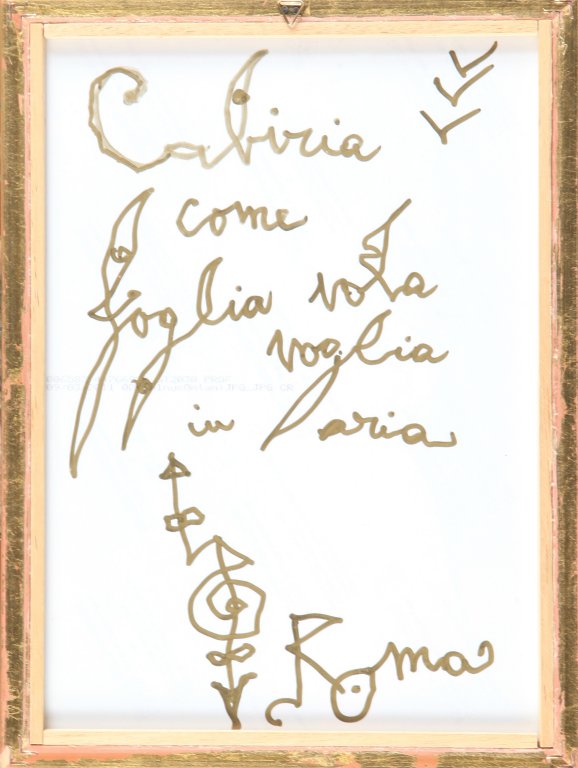 Cabiria
come
foglia vola
voglia
in aria
Roma